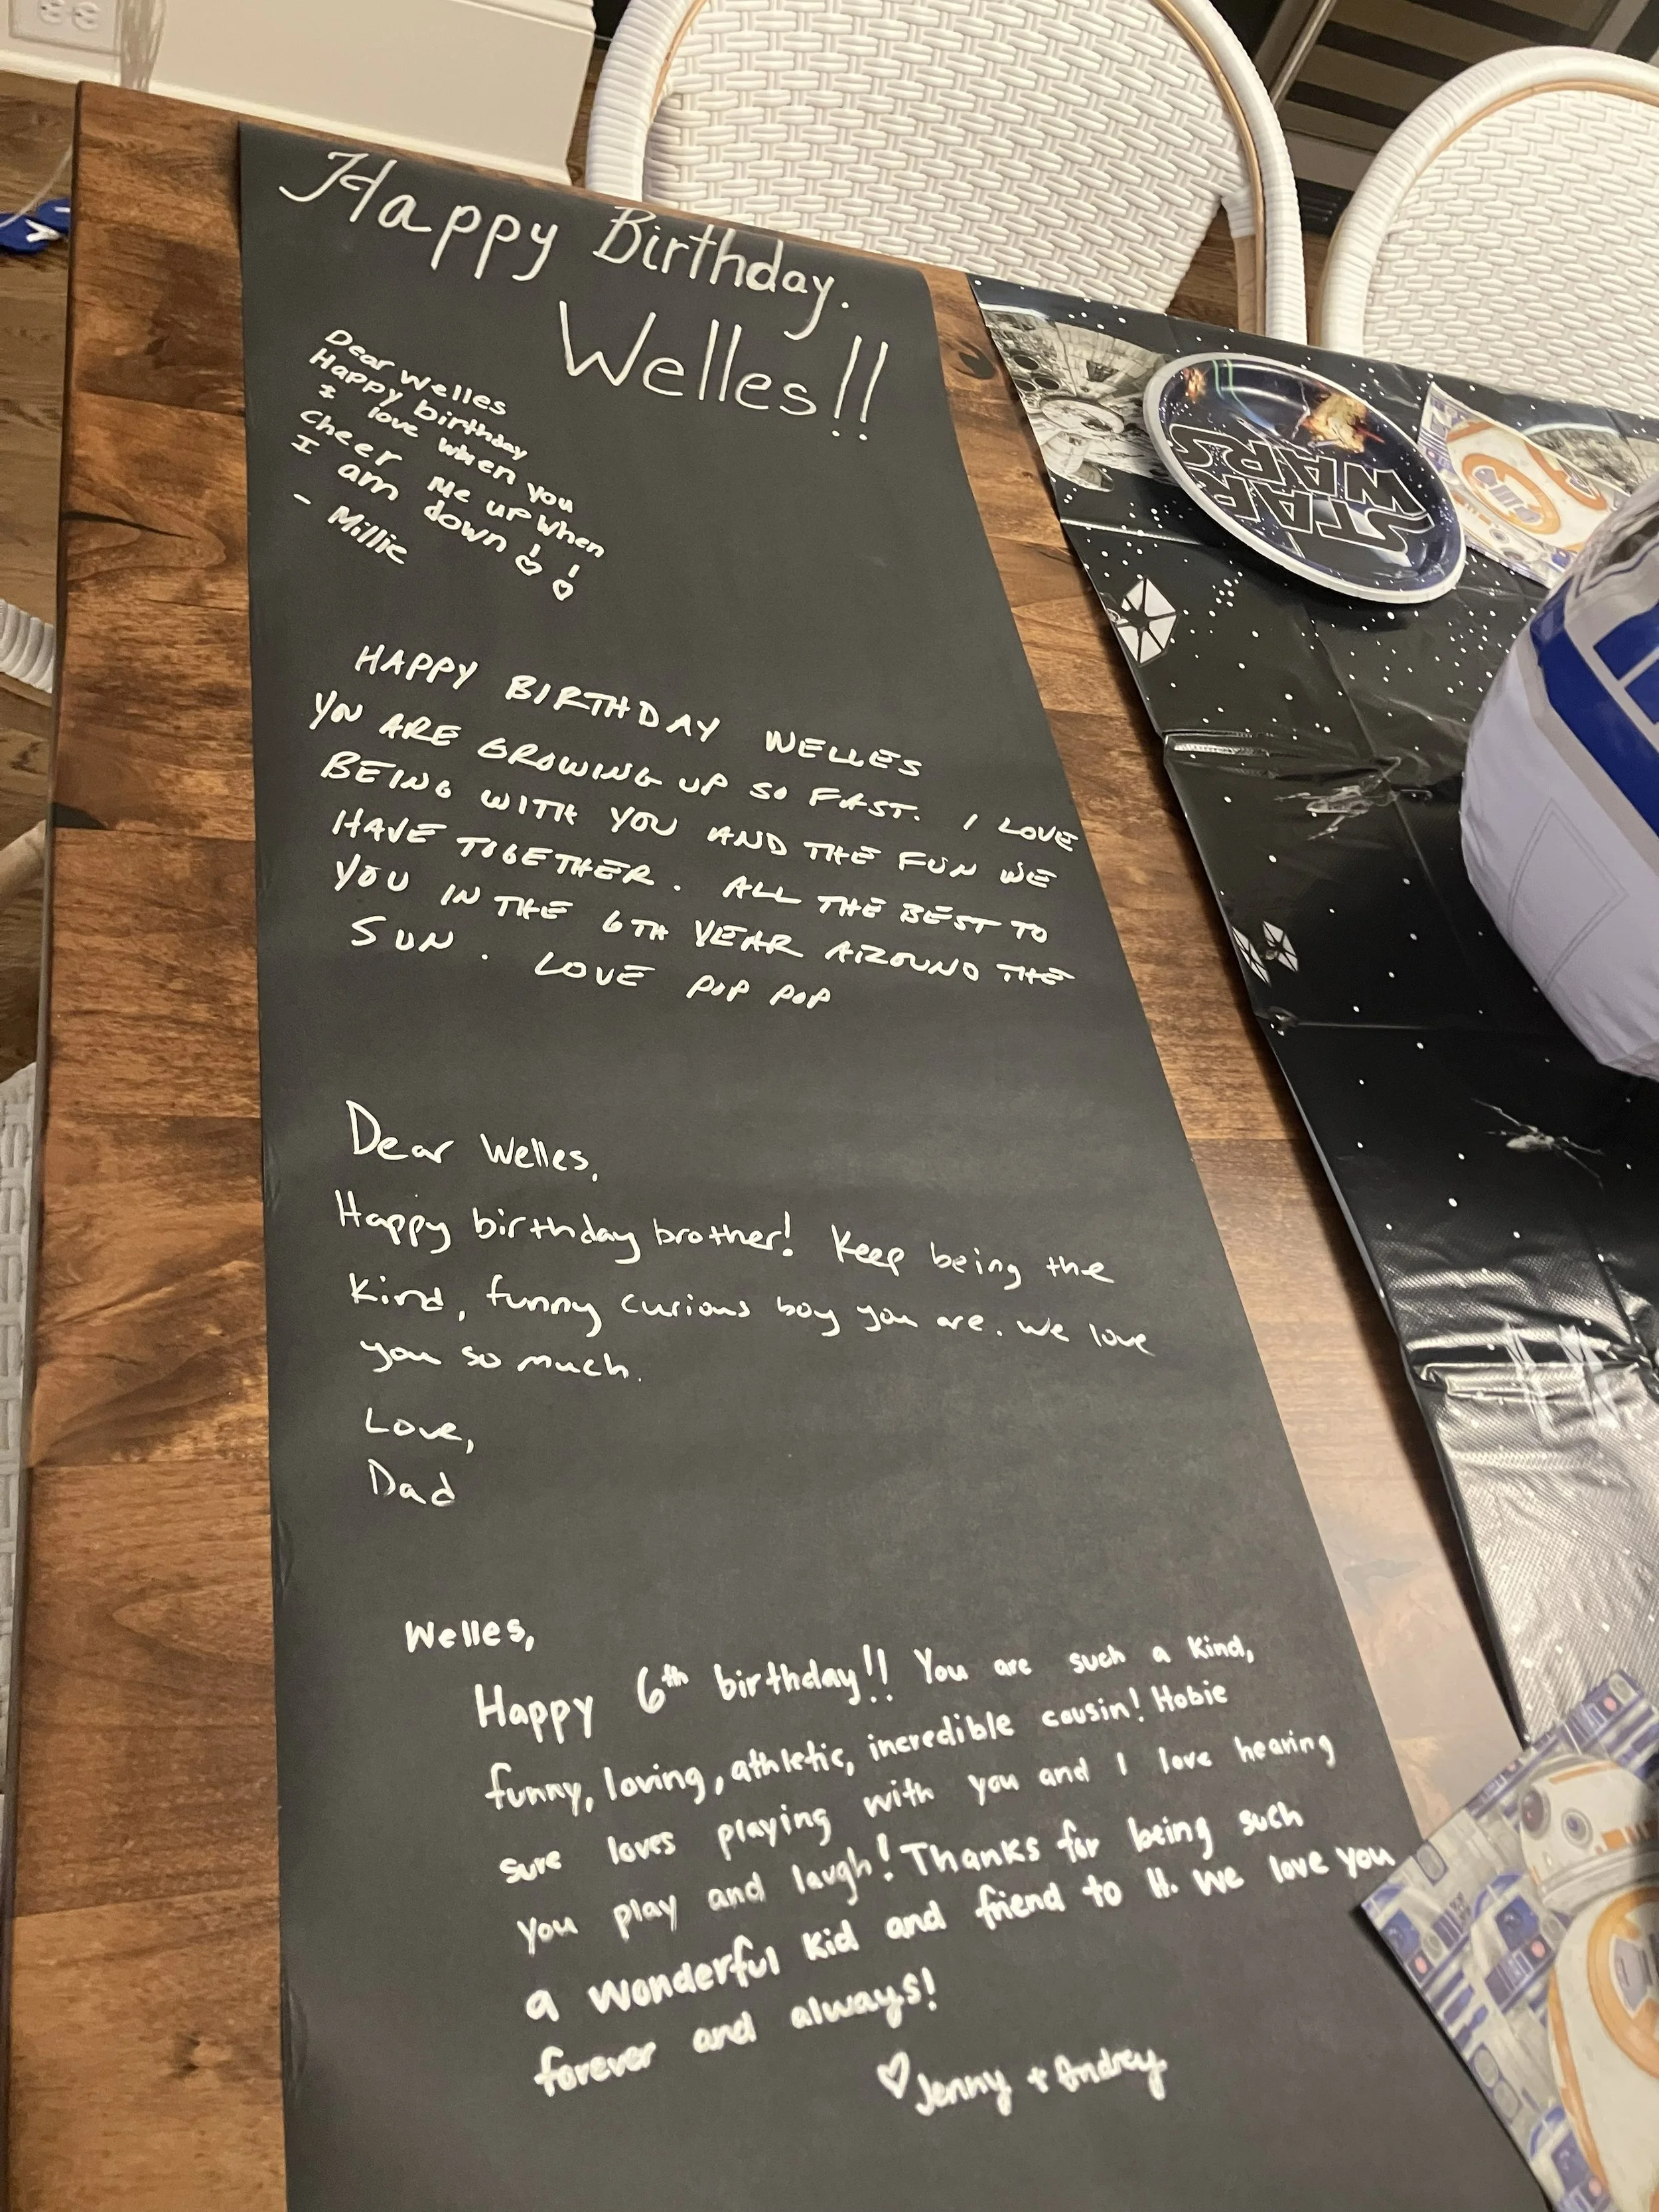 Happy Birthday.
Welles!!
Dear Welles
Happy birthday
I love when you
Cheer me up when
I am down!!
- Millie
HAPPY BIRTHDAY WELLES
YOU ARE GROWING UP SO FAST. I LOVE
BEING WITH YOU AND THE FUN WE
HAVE TOGETHER. ALL THE BEST TO
YOU IN THE 6TH YEAR AROUND THE
SUN. LOVE POP POP
Dear Welles,
Happy birthday brother! Keep being the
kind, funny curious boy you are. We love
you so much.
Love,
Dad
Welles,
Happy 6th birthday!! You are such a kind,
funny, loving, athletic, incredible cousin! Hobie
sure loves playing with you and I love hearing
you play and laugh! Thanks for being such
a wonderful kid and friend to H. We love you
forever and always!
♡ Jenny + Andrey
STAR
WARS